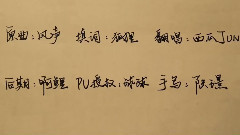 原曲:风声 填词:狐狸 翻唱:西瓜JUN
后期:啊鲤 PV授权:球球 手写:阿璟